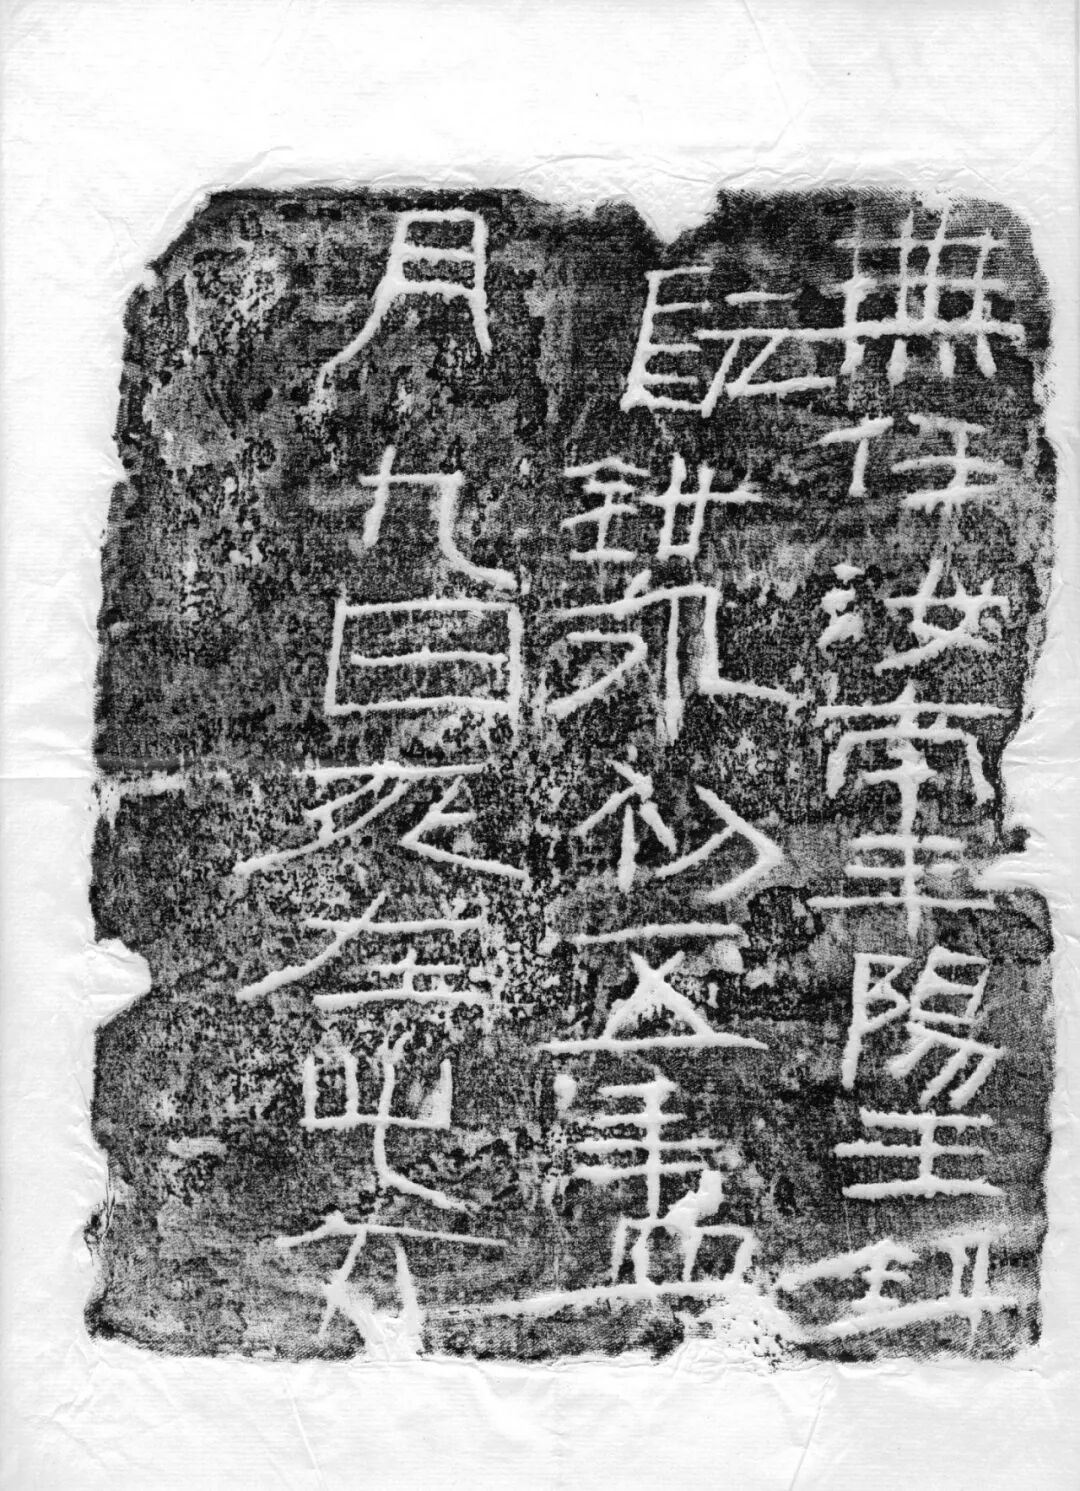 無任汝南陽王
髡鉗永初五年四
月九日死在此下